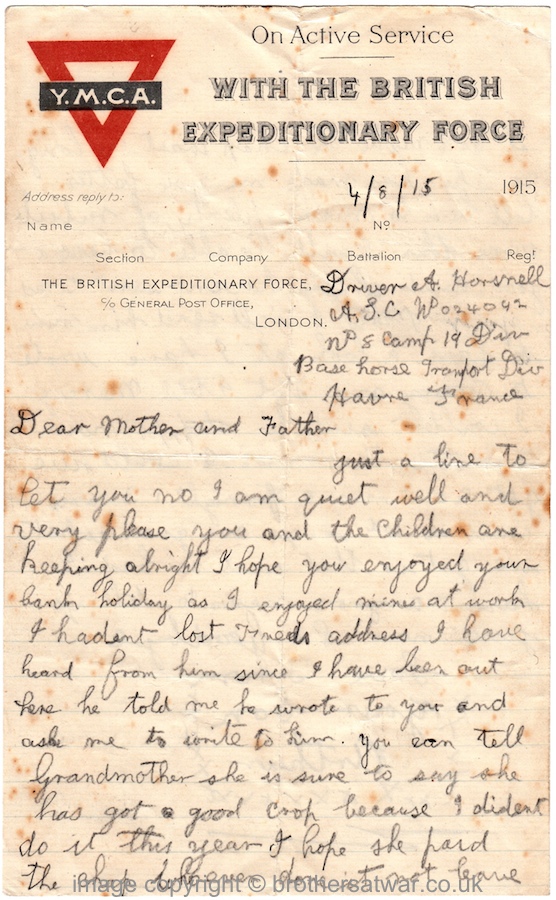 On Active Service
Y.M.C.A.
WITH THE BRITISH
EXPEDITIONARY FORCE
4/8/15 1915
Address reply to:
Name No
Section Company Battalion Regt
THE BRITISH EXPEDITIONARY FORCE,
c/o GENERAL POST OFFICE,
LONDON.
Driver A. Horsnell
A.S.C. No 024092
No 8 Camp 19 Div
Base horse Tranport Div
Havre France
Dear Mother and Father
just a line to
let you no I am quiet well and
very please you and the Children are
keeping alright I hope you enjoyed your
bank holiday as I enjoyed mine at work
I hadent lost Freds address I have
heard from him since I have been out
here he told me he wrote to you and
ask me to write to him. you can tell
Grandmother she is sure to say she
has got a good crop because I dident
do it this year I hope she paid
the chap who ever done it not leave
image copyright © brothersatwar.co.uk